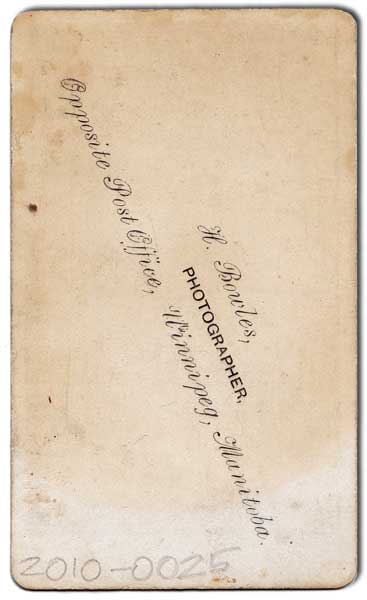 H. Bowles,
PHOTOGRAPHER,
Opposite Post Office, Winnipeg, Manitoba.
2010-0025